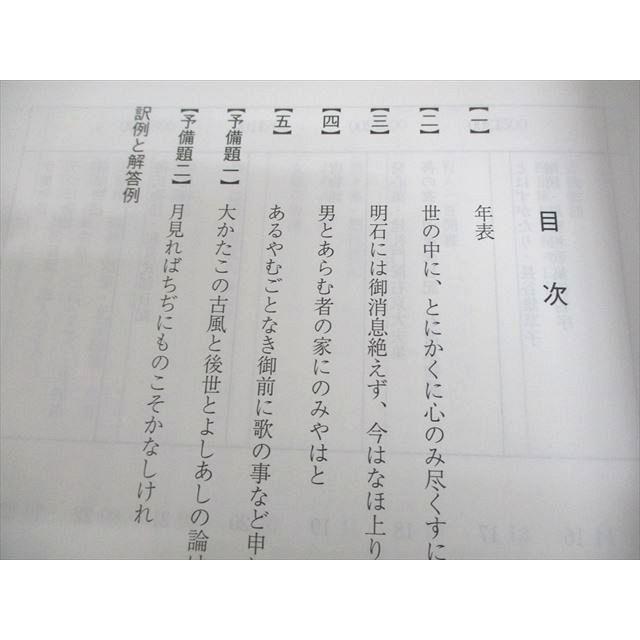 目次
【一】 年表
【二】 世の中に、とにかくに心のみ尽くすに
【三】 明石には御消息絶えず、今はなほ上り
【四】 男とあらむ者の家にのみやはと
【五】 あるやむごとなき御前に歌の事など申し
【予備題一】 大かたこの古風と後世とよしあしの論は
【予備題二】 月見ればちぢにものこそかなしけれ
訳例と解答例